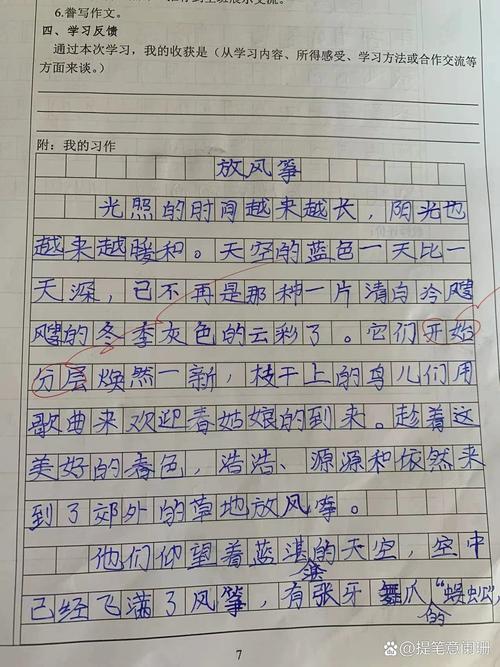 6.誊写作文。
四、学习反馈
通过本次学习，我的收获是（从学习内容、所得感受、学习方法或合作交流等
方面来谈。）
附：我的习作
放风筝
光照的时间越来越长，阳光也
越来越暖和。天空的蓝色一天比一
天深，已不再是那种一片清白冷飕
飕的冬季灰色的云彩了。它们开始
分层焕然一新，枝干上的鸟儿们用
歌曲来欢迎春姑娘的到来。趁着这
美好的春色，浩浩、源源和依然来
到了郊外的草地放风筝。
他们仰望着蓝湛的天空，空中
已经飞满了风筝，有张牙舞爪的“蜈蚣”，
7
@提笔意阑珊